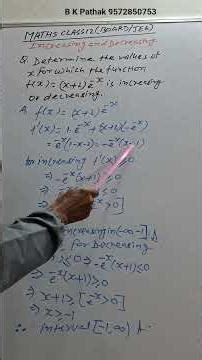 B K Pathak 9572850753
MATHS CLASS 12 (BOARD/JEE)
Increasing and Decreasing
Q. Determine the values of
x for which the function
f(x) = (x+2)e^-x is increasing
or decreasing.
A. f(x) = (x+2)e^-x
f'(x) = 1·e^-x + (x+2)(-e^-x)
= e^-x(1-x-2) = -e^-x(x+1)
for increasing f'(x) ≥ 0
⇒ -e^-x(x+1) ≥ 0
⇒ 0
> 0]
increasing in (-∞,-1]
for Decreasing
≤ 0 ⇒ -e^-x(x+1) ≤ 0
⇒ e^-x(x+1) ≥ 0
⇒ x+1 ≥ [e^-x > 0]
⇒ x ≥ -1
∴ interval [-1,∞)